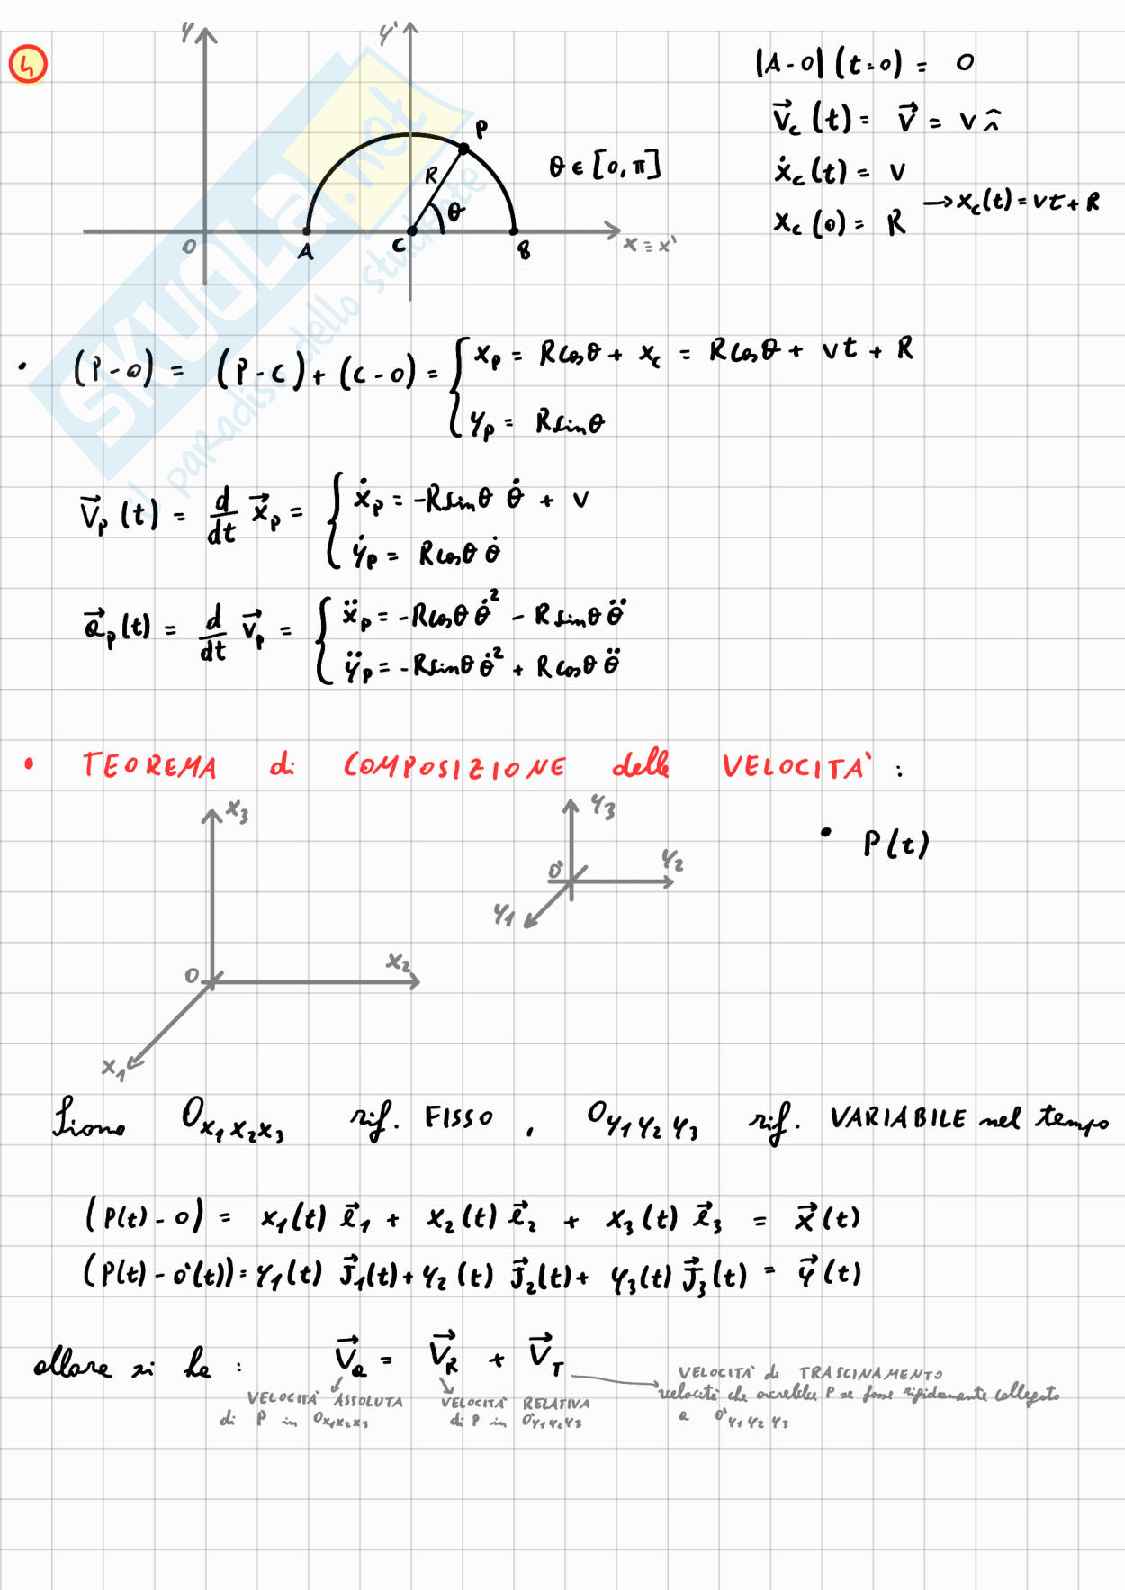 4
y
y'
P
R
θ
O
A
C
B
x ≡ x'
θ ∈ [0, π]
|A-O| (t=0) = 0
V⃗c (t) = V⃗ = v î
ẋc (t) = v
xc (0) = R
→ xc(t) = vt + R
SKUOLA.net
il paradiso dello studente
• (P-O) = (P-C) + (C-O) = { xp = Rcosθ + xc = Rcosθ + vt + R
yp = Rsinθ
V⃗p (t) = d/dt x⃗p = { ẋp = -Rsinθ θ̇ + v
ẏp = Rcosθ θ̇
a⃗p(t) = d/dt v⃗p = { ẍp = -Rcosθ θ̇² - Rsinθ θ̈
ÿp = -Rsinθ θ̇² + Rcosθ θ̈
• TEOREMA di COMPOSIZIONE delle VELOCITA' :
x3
y3
• P(t)
O'
y2
y1
O
x2
x1
Siano Ox1x2x3 rif. FISSO , Oy1y2y3 rif. VARIABILE nel tempo
(P(t)-O) = x1(t) e⃗1 + x2(t) e⃗2 + x3(t) e⃗3 = x⃗(t)
(P(t)-O'(t)) = y1(t) J⃗1(t) + y2(t) J⃗2(t) + y3(t) J⃗3(t) = y⃗(t)
allora si ha : V⃗a = V⃗R + V⃗T
VELOCITA' ASSOLUTA
di P in Ox1x2x3
VELOCITA' RELATIVA
di P in O'y1y2y3
VELOCITA' di TRASCINAMENTO
velocità che avrebbe P se fosse rigidamente collegato
a O'y1y2y3